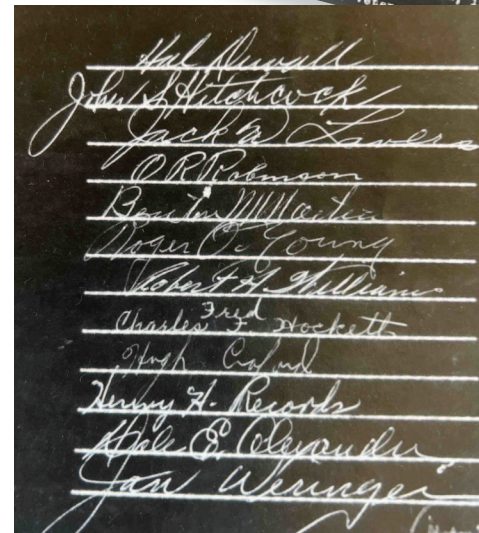 Hal Duvall
John L Hitchcock
Jack W Lavers
O R Robinson
Benton M Martin
Roger C. Young
Robert H. Williams
Fred
Charles F. Hockett
Hugh
Henry H. Records
Hale E. Alexander
Jan Weringer